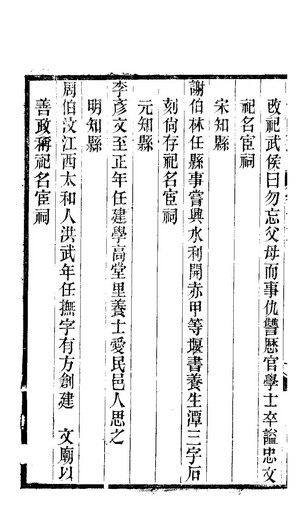 改祀武侯曰勿忘父母而事仇讐歴官學士卒謚忠文
祀名宦祠
宋知縣
謝伯林任縣事嘗興水利開赤甲等堰書養生潭三字石
刻尙存祀名宦祠
元知縣
李彥文至正年任建學高堂里養士愛民邑人思之
明知縣
周伯汶江西太和人洪武年任撫字有方創建 文廟以
善政稱祀名宦祠